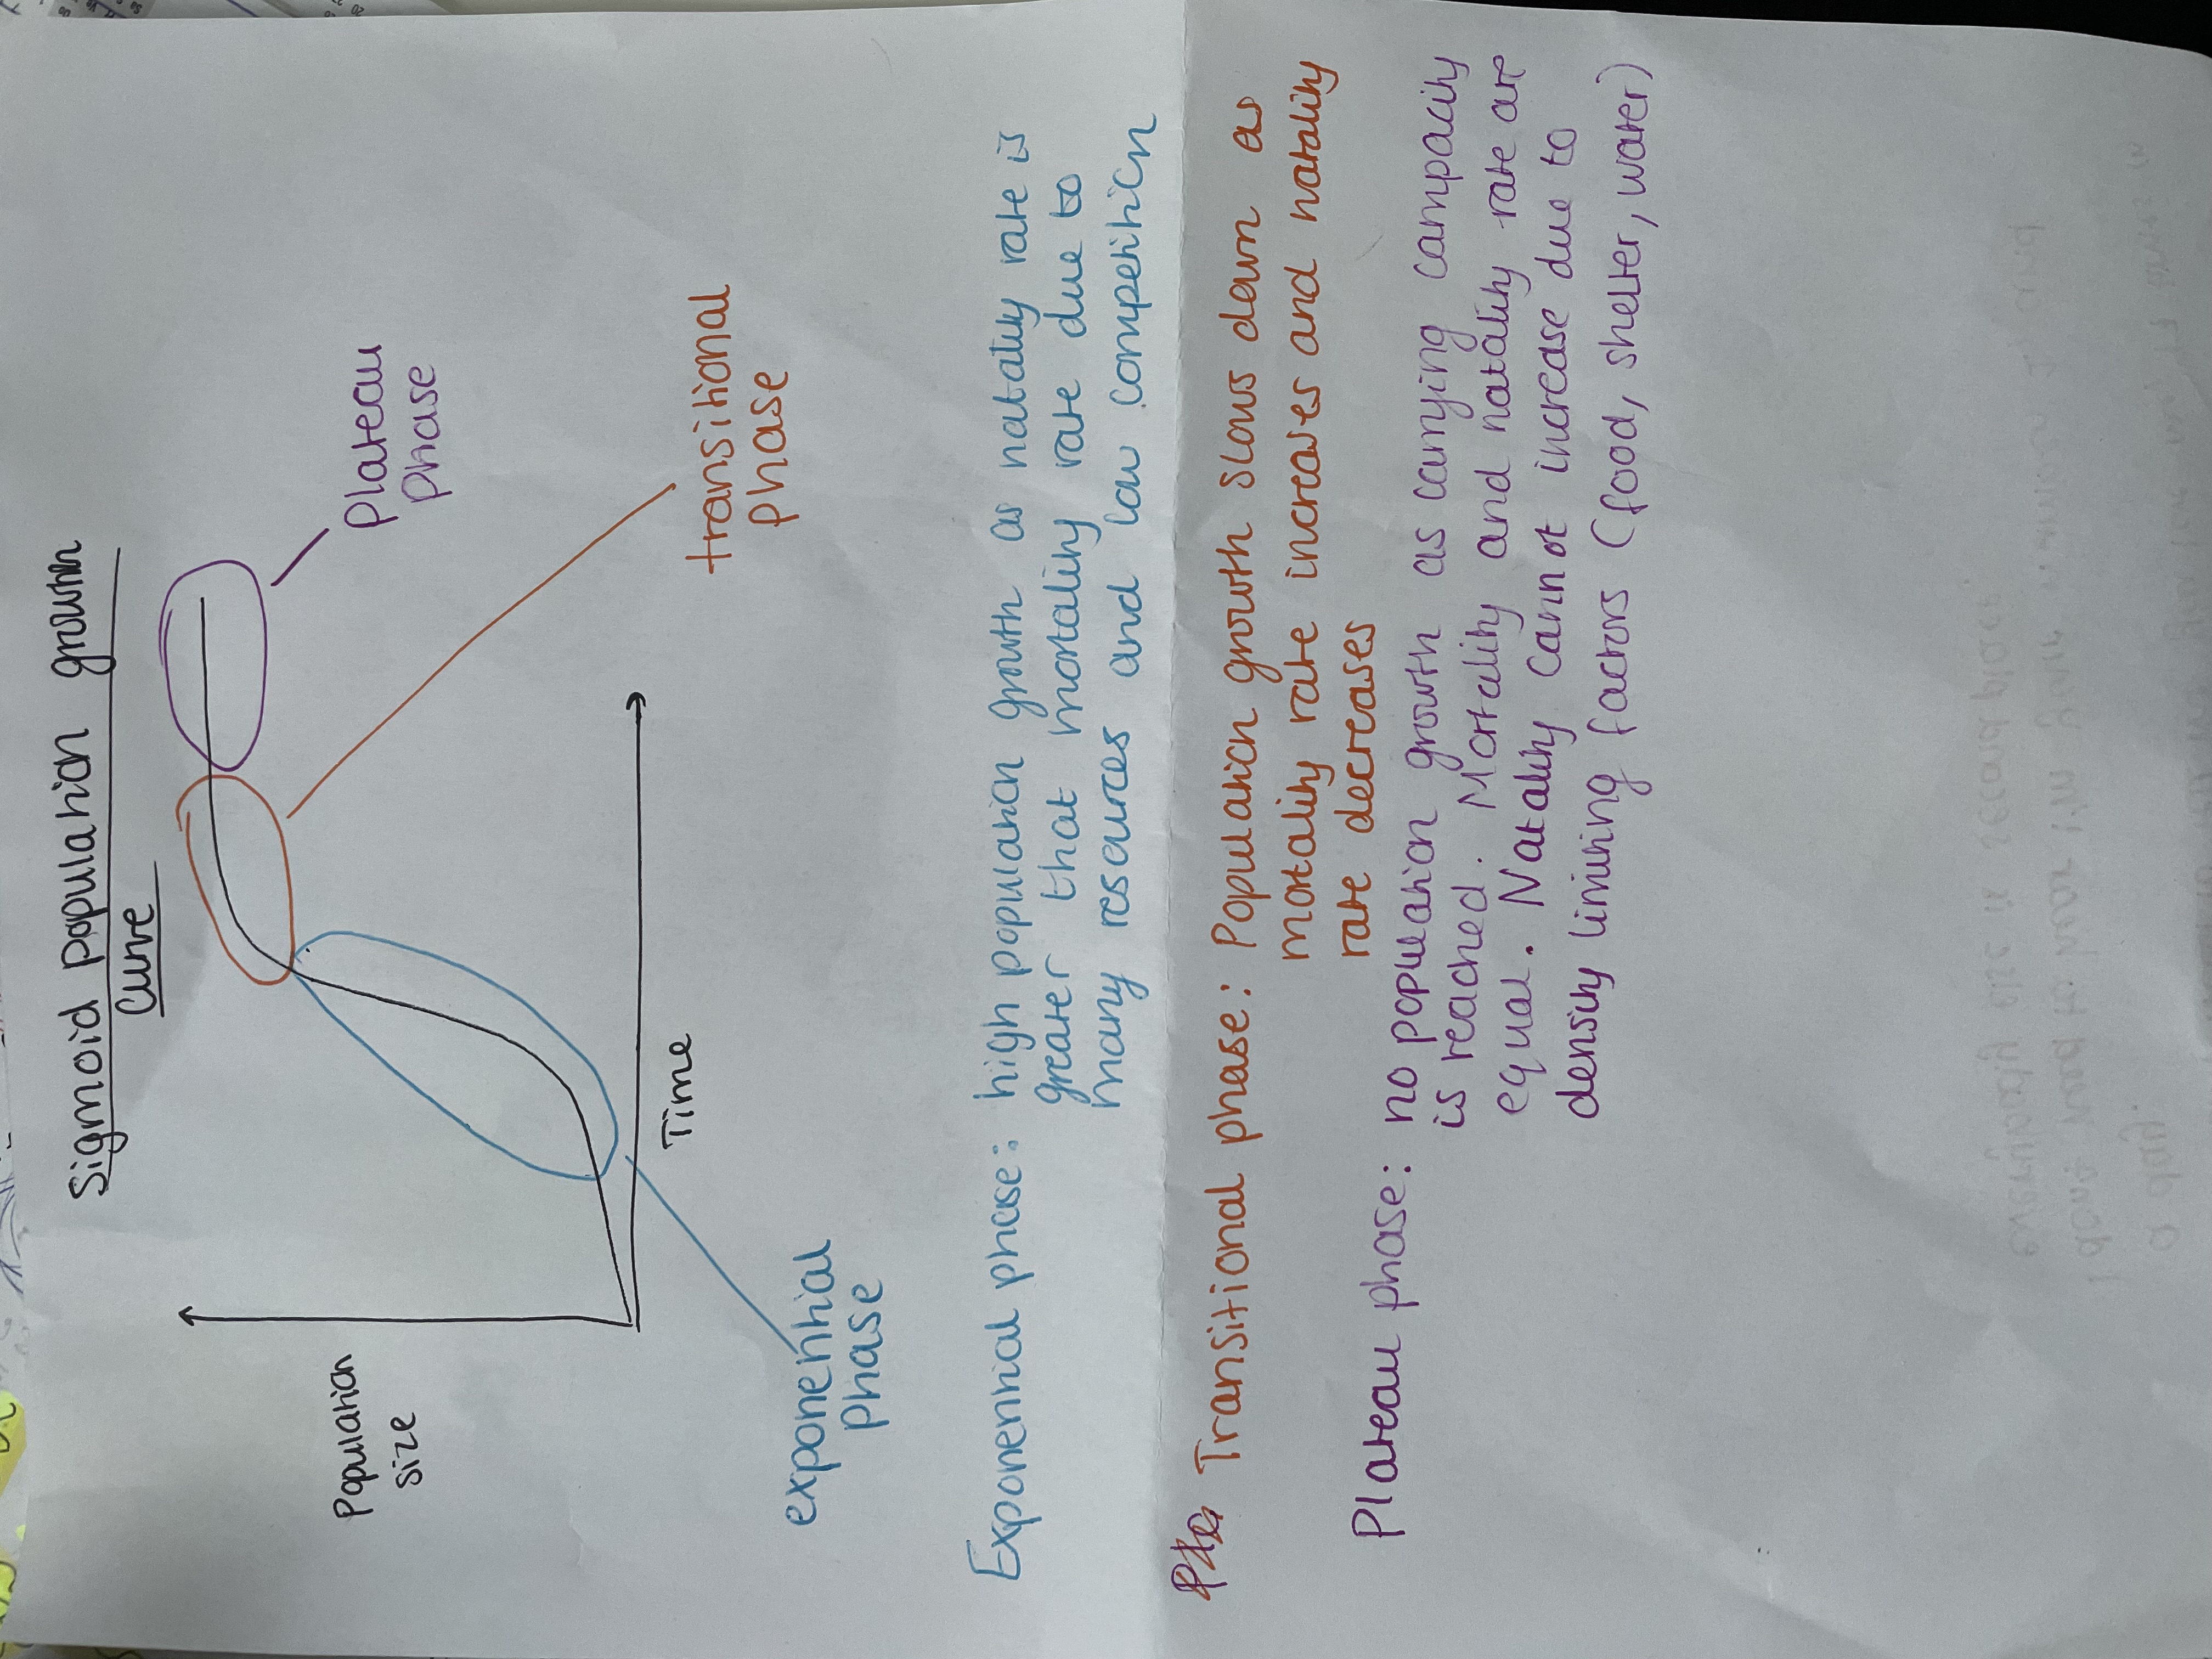 Sigmoid population growth
curve
Population
size
Plateau
phase
Time
transitional
phase
exponential
phase
Exponential phase: high population growth as natality rate is
greater that mortality rate due to
many resources and low competition
Transitional phase: Population growth slows down as
mortality rate increases and natality
rate decreases
Plateau phase: no population growth as carrying campacity
is reached. Mortality and natality rate are
equal. Natality cannot increase due to
density limiting factors (food, shelter, water)